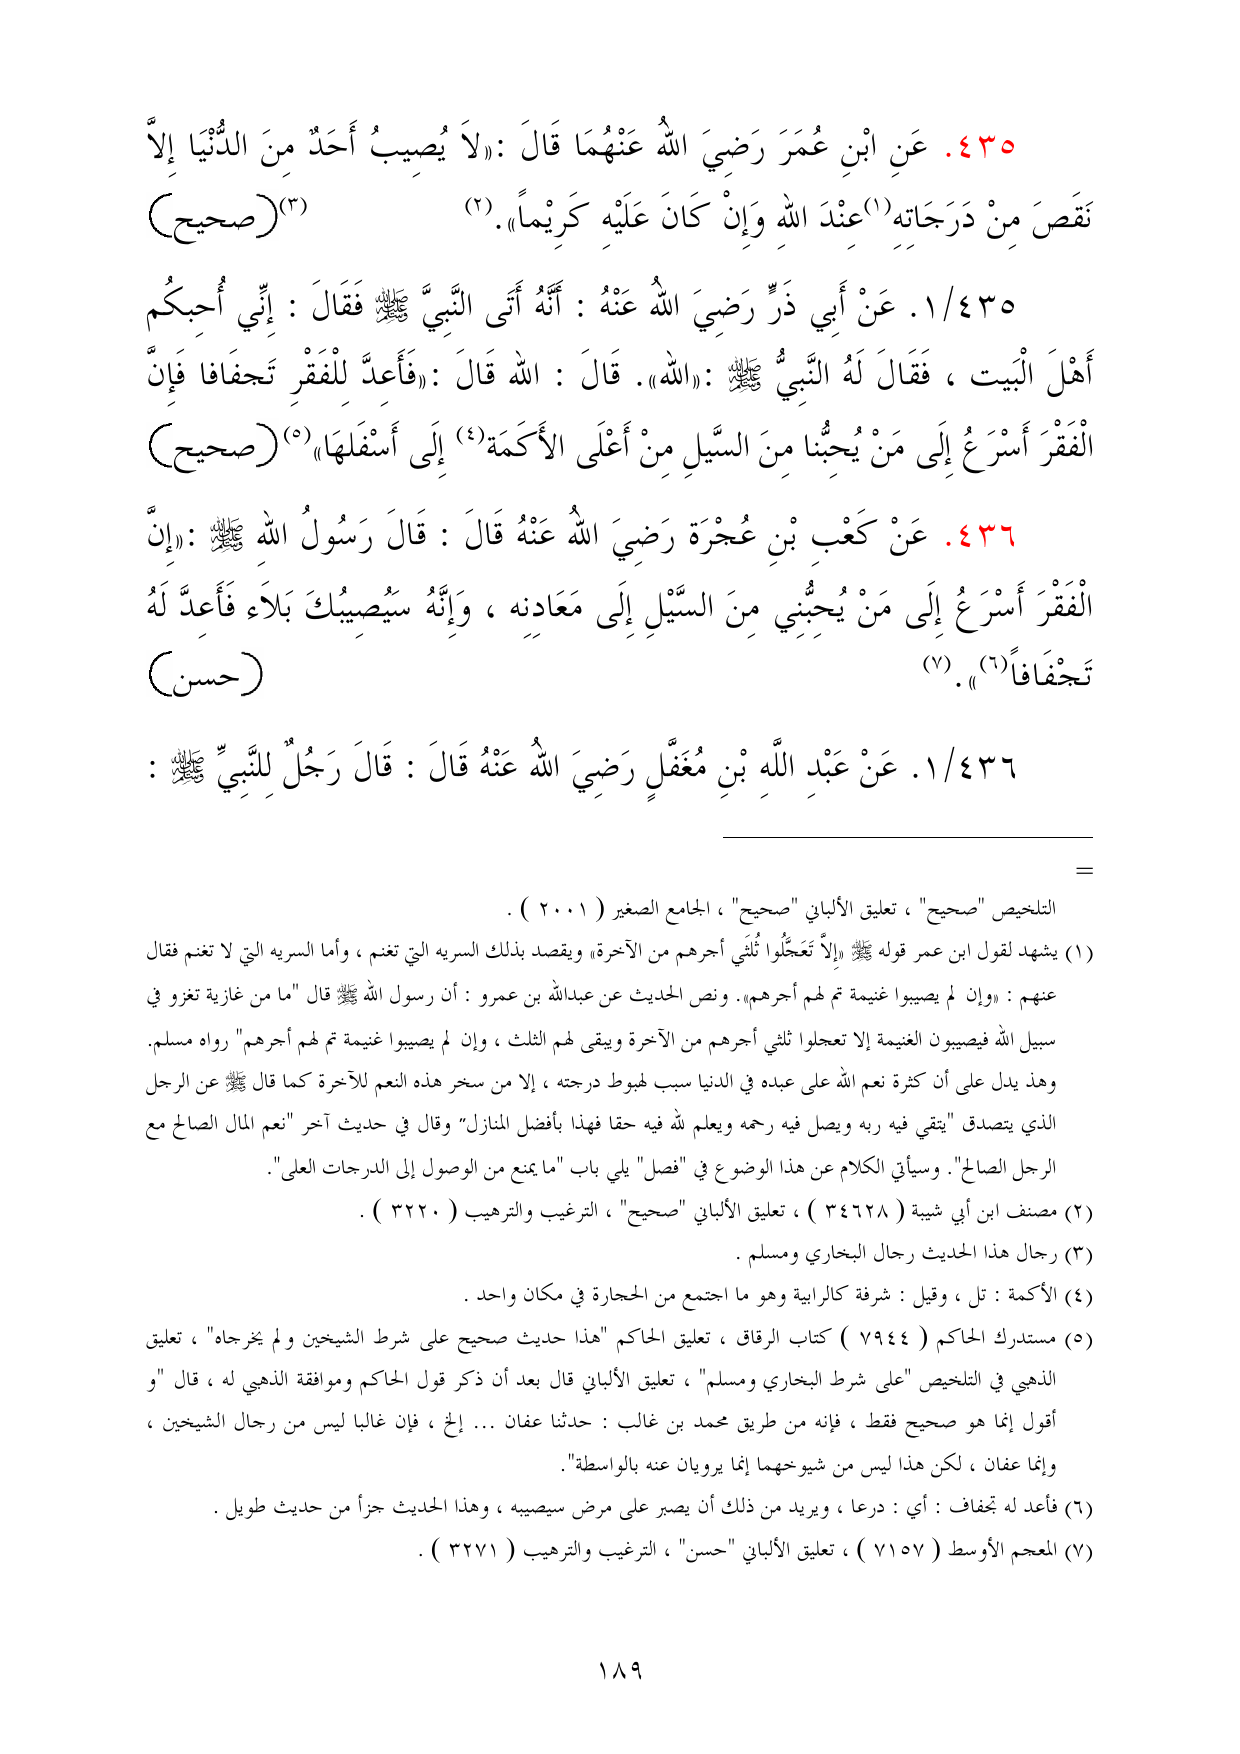 ٤٣٥. عَنِ ابْنِ عُمَرَ رَضِيَ اللهُ عَنْهُمَا قَالَ :«لاَ يُصِيبُ أَحَدٌ مِنَ الدُّنْيَا إِلاَّ
نَقَصَ مِنْ دَرَجَاتِهِ(١)عِنْدَ اللهِ وَإِنْ كَانَ عَلَيْهِ كَرِيْماً».(٢) (٣)(صحيح)
١/٤٣٥. عَنْ أَبِي ذَرٍّ رَضِيَ اللهُ عَنْهُ : أَنَّهُ أَتَى النَّبِيَّ ﷺ فَقَالَ : إِنِّي أُحِبكُم
أَهْلَ الْبَيت ، فَقَالَ لَهُ النَّبِيُّ ﷺ :«الله». قَالَ : الله قَالَ :«فَأَعِدَّ لِلْفَقْرِ تَجفَافا فَإِنَّ
الْفَقْرَ أَسْرَعُ إِلَى مَنْ يُحِبُّنا مِنَ السَّيلِ مِنْ أَعْلَى الأَكَمَة(٤) إِلَى أَسْفَلِهَا»(٥)(صحيح)
٤٣٦. عَنْ كَعْبِ بْنِ عُجْرَة رَضِيَ اللهُ عَنْهُ قَالَ : قَالَ رَسُولُ اللهِ ﷺ :«إِنَّ
الْفَقْرَ أَسْرَعُ إِلَى مَنْ يُحِبُّنِي مِنَ السَّيْلِ إِلَى مَعَادِنِه ، وَإِنَّهُ سَيُصِيبُكَ بَلاَء فَأَعِدَّ لَهُ
تَجْفَافاً(٦)».(٧) (حسن)
١/٤٣٦. عَنْ عَبْدِ اللَّهِ بْنِ مُغَفَّلٍ رَضِيَ اللهُ عَنْهُ قَالَ : قَالَ رَجُلٌ لِلنَّبِيِّ ﷺ :
=
التلخيص "صحيح" ، تعليق الألباني "صحيح" ، الجامع الصغير ( ٢٠٠١ ) .
(١) يشهد لقول ابن عمر قوله ﷺ «إِلاَّ تَعَجَّلُوا ثُلُثَي أجرهم من الآخرة» ويقصد بذلك السريه التي تغنم ، وأما السريه التي لا تغنم فقال
عنهم : «وإن لم يصيبوا غنيمة تم لهم أجرهم». ونص الحديث عن عبدالله بن عمرو : أن رسول الله ﷺ قال "ما من غازية تغزو في
سبيل الله فيصيبون الغنيمة إلا تعجلوا ثلثي أجرهم من الآخرة ويبقى لهم الثلث ، وإن لم يصيبوا غنيمة تم لهم أجرهم" رواه مسلم.
وهذ يدل على أن كثرة نعم الله على عبده في الدنيا سبب لهبوط درجته ، إلا من سخر هذه النعم للآخرة كما قال ﷺ عن الرجل
الذي يتصدق "يتقي فيه ربه ويصل فيه رحمه ويعلم لله فيه حقا فهذا بأفضل المنازل" وقال في حديث آخر "نعم المال الصالح مع
الرجل الصالح". وسيأتي الكلام عن هذا الوضوع في "فصل" يلي باب "ما يمنع من الوصول إلى الدرجات العلى".
(٢) مصنف ابن أبي شيبة ( ٣٤٦٢٨ ) ، تعليق الألباني "صحيح" ، الترغيب والترهيب ( ٣٢٢٠ ) .
(٣) رجال هذا الحديث رجال البخاري ومسلم .
(٤) الأكمة : تل ، وقيل : شرفة كالرابية وهو ما اجتمع من الحجارة في مكان واحد .
(٥) مستدرك الحاكم ( ٧٩٤٤ ) كتاب الرقاق ، تعليق الحاكم "هذا حديث صحيح على شرط الشيخين ولم يخرجاه" ، تعليق
الذهبي في التلخيص "على شرط البخاري ومسلم" ، تعليق الألباني قال بعد أن ذكر قول الحاكم وموافقة الذهبي له ، قال "و
أقول إنما هو صحيح فقط ، فإنه من طريق محمد بن غالب : حدثنا عفان ... إلخ ، فإن غالبا ليس من رجال الشيخين ،
وإنما عفان ، لكن هذا ليس من شيوخهما إنما يرويان عنه بالواسطة".
(٦) فأعد له تجفاف : أي : درعا ، ويريد من ذلك أن يصبر على مرض سيصيبه ، وهذا الحديث جزأ من حديث طويل .
(٧) المعجم الأوسط ( ٧١٥٧ ) ، تعليق الألباني "حسن" ، الترغيب والترهيب ( ٣٢٧١ ) .
١٨٩